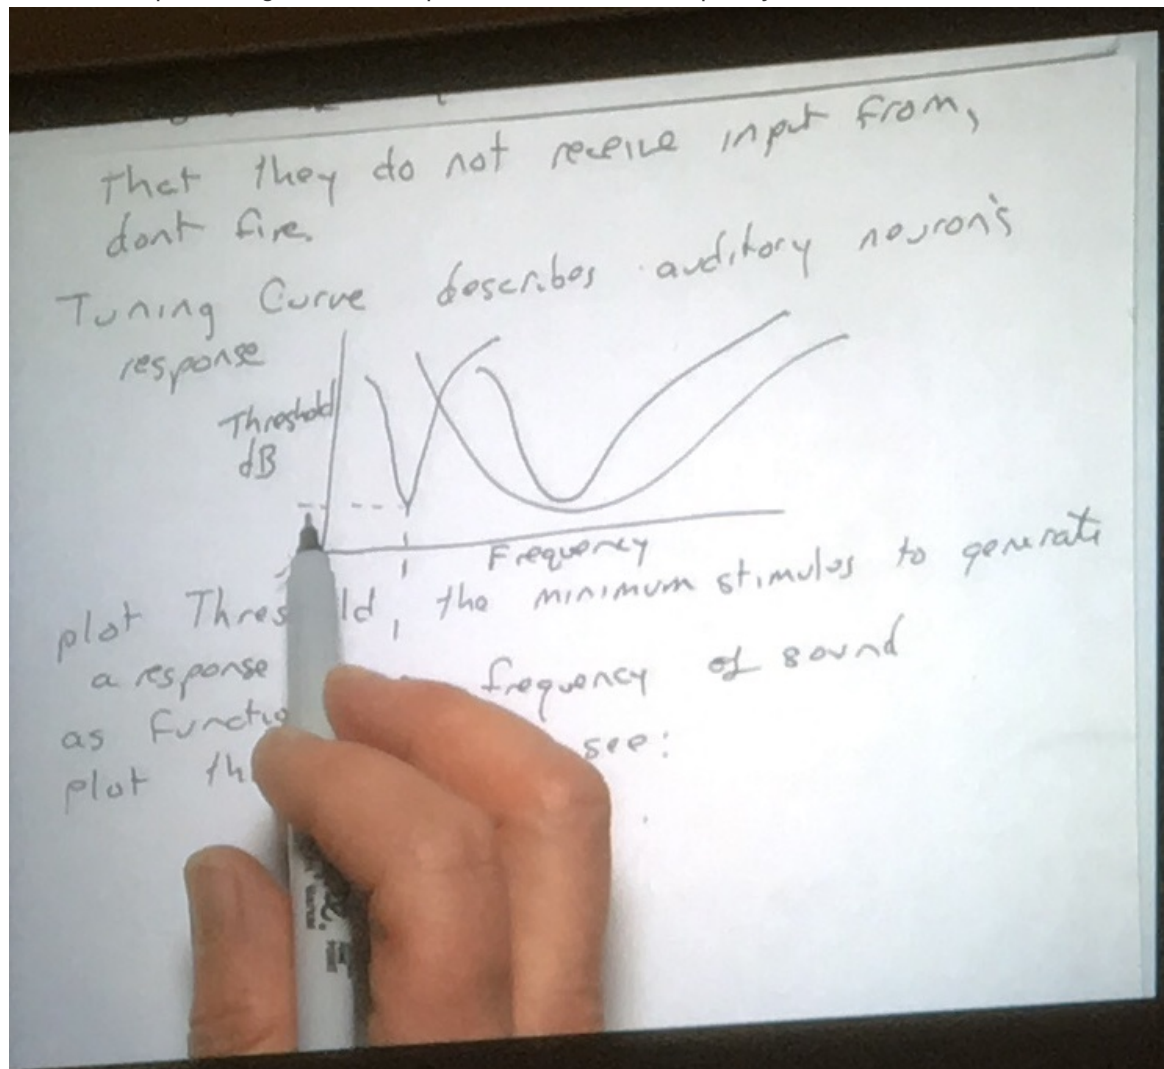 That they do not receive input from,
dont fire.
Tuning Curve describes auditory neuron's
response
Threshold
dB
Frequency
plot Thres ld, the minimum stimulus to generate
a response frequency of sound
as Functio
plot th see: